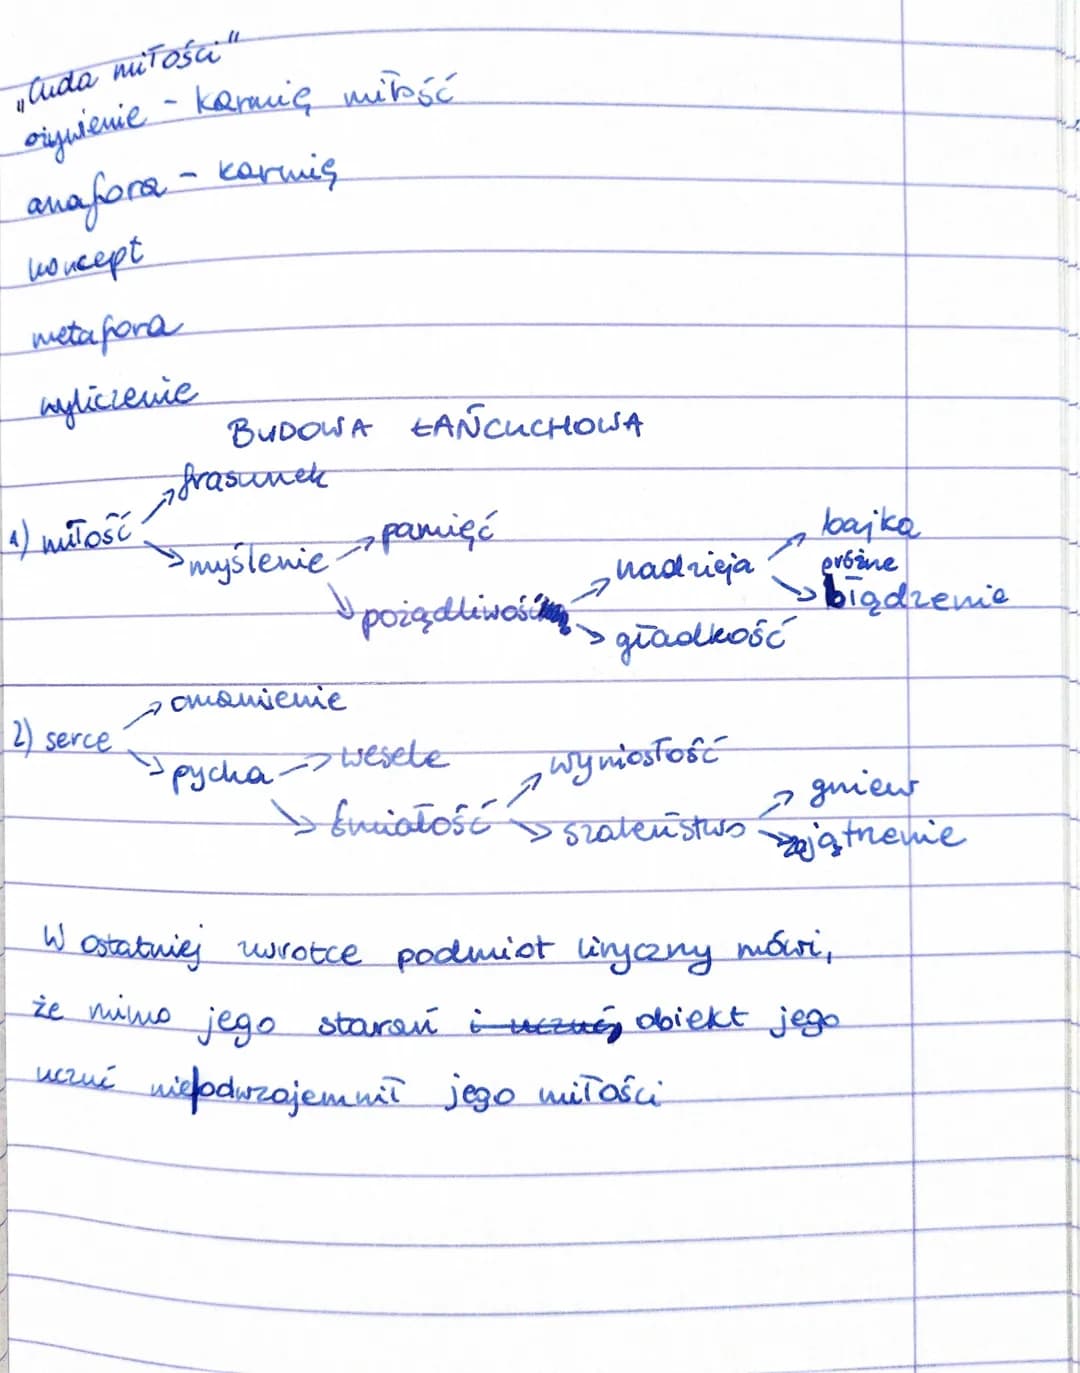 „Cuda miłości"
ożywienie - karmię miłość
anafora - karmię
koncept
metafora
wyliczenie
BUDOWA ŁAŃCUCHOWA
1) miłość → frasunek
→ myślenie → pamięć
→ pożądliwość → nadzieja → bajka
→ próżne błądzenie
→ gładkość
2) serce → omamienie
→ pycha → wesele
→ śmiałość → wyniosłość
→ szaleństwo → gniew
→ zajątrzenie
W ostatniej zwrotce podmiot liryczny mówi,
że mimo jego starań i uczuć, obiekt jego
uczuć nie podwzajemnił jego miłości